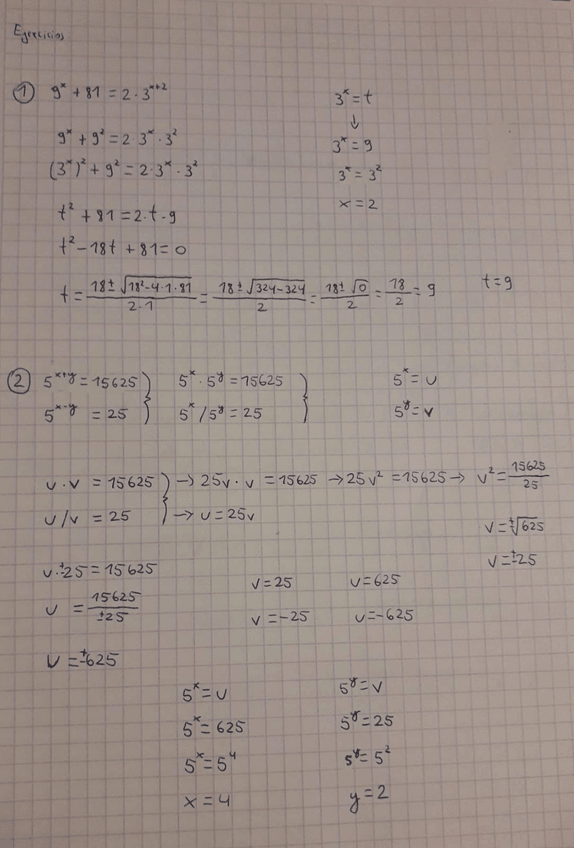 Ejercicios
① 9^x + 81 = 2 · 3^(x+2)
3^x = t
↓
9^x + 9² = 2 · 3^x · 3²
3^x = 9
(3^x)² + 9² = 2 · 3^x · 3²
3^x = 3²
t² + 81 = 2 · t · 9
x = 2
t² − 18t + 81 = 0
t = (18 ± √(18² − 4 · 1 · 81))/(2 · 1) = (18 ± √(324 − 324))/2 = (18 ± √0)/2 = 18/2 = 9 t = 9
② 5^(x+y) = 15625 } 5^x · 5^y = 15625 } 5^x = u
5^(x−y) = 25 5^x / 5^y = 25 5^y = v
u · v = 15625 } → 25v · v = 15625 → 25v² = 15625 → v² = 15625/25
u / v = 25 → u = 25v
v = ±√625
v = ±25
u · ±25 = 15625
v = 25 u = 625
u = 15625/±25
v = −25 u = −625
u = ±625
5^x = u 5^y = v
5^x = 625 5^y = 25
5^x = 5⁴ 5^y = 5²
x = 4 y = 2